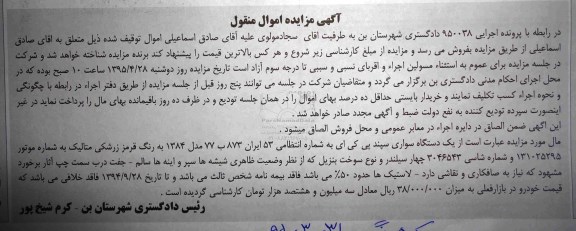 آگهی مزایده اموال منقول
در رابطه با پرونده اجرایی ۹۵۰۰۳۸ دادگستری شهرستان بن به ظرفیت اقای سجادمولوی علیه آقای صادق اسماعیلی اموال توقیف شده ذیل متعلق به اقای صادق
اسماعیلی از طریق مزایده بفروش می رسد و مزایده از مبلغ کارشناسی زیر شروع و هر کس بالاترین قیمت را پیشنهاد کند برنده مزایده شناخته خواهد شد و شرکت
در جلسه مزایده برای عموم به استثناء مسولین اجراء و اقربای نسبی و سببی تا درجه سوم آزاد است تاریخ مزایده روز دوشنبه ۱۳۹۵/۴/۲۸ ساعت ۱۰ صبح بوده که در
محل اجرای احکام مدنی دادگستری بن برگزار می گردد و متقاضیان شرکت در جلسه می توانند پنج روز قبل از جلسه مزایده از طریق دفتر اجراء در رابطه با چگونگی
و نحوه اجراء کسب تکلیف نمایند و خریدار بایستی حداقل ده درصد بهای اموال را در همان جلسه تودیع و در ظرف ده روز باقیمانده بهای مال را پرداخت نماید در غیر
اینصورت سپرده تودیع کننده به نفع دولت ضبط و آگهی مجدد صادر خواهد شد.
این اگهی ضمن الصاق در دایره اجراء در معابر عمومی و محل فروش الصاق میشود.
مال مورد مزایده عبارت است از یک دستگاه سواری سپند پی کی ای به شماره انتظامی ۵۳ ایران ۸۷۳ ب ۷۷ مدل ۱۳۸۴ به رنگ قرمز زرشکی متالیک به شماره موتور
۱۳۱۰۲۵۲۹۵ و شماره شاسی ۳۰۴۶۵۴۳ چهار سیلندر و نوع سوخت بنزیل که از نظر وضعیت ظاهری شیشه ها سپر و اینه ها سالم - جفت درب سمت چپ آثار برخورد
مشهود که نیاز به صافکاری و نقاشی دارد - لاستیک ها حدود ۵۰٪ می باشد فاقد بیمه نامه شخص ثالث می باشد و تا تاریخ ۱۳۹۴/۹/۲۸ فاقد خلافی می باشد که
قیمت خودرو در بازارفعلی به میزان ۳۸/۰۰۰/۰۰۰ ریال معادل سه میلیون و هشتصد هزار تومان کارشناسی گردیده است.
رئیس دادگستری شهرستان بن - کرم شیخ پور